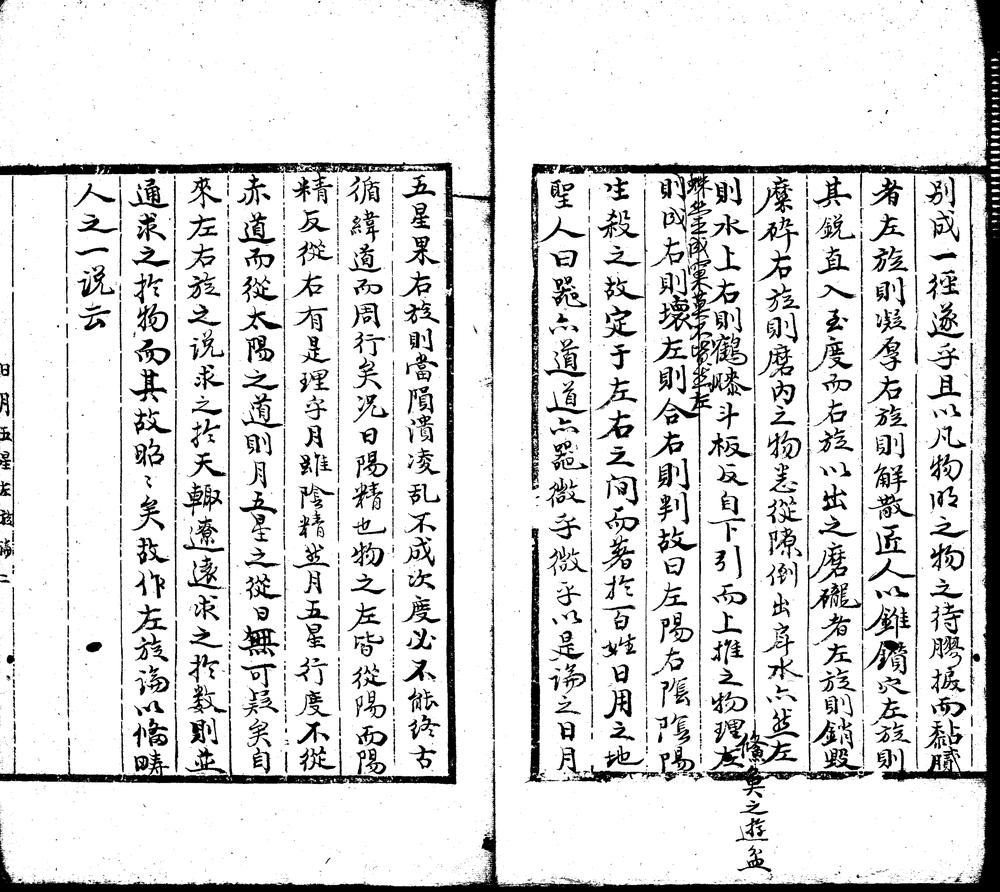 别成一徑遂乎且以凡物明之物之待膠振而黏膩
者左旋則凝厚右旋則解散匠人以錐鑽穴左旋則
其銳直入至度而右旋以出之磨礲者左旋則銷毀
糜碎右旋則磨內之物悉從隙倒出戽水亦然左
則水上右則鶴膝斗板反自下引而上推之物理左
鯈矣之遊盆
蛛蝥成窠莫不皆然左
則成右則壞左則合右則判故曰左陽右陰陰陽
生殺之故定于左右之间而著於百姓日用之地
聖人曰器亦道道亦器微乎微乎以是論之日月
五星果右旋則當隕潰凌乱不成次度必不能终古
循緯道而周行矣况日陽精也物之左皆從陽而陽
精反從右有是理乎月雖陰精然月五星行度不從
赤道而從太陽之道則月五星之從日無可疑矣自
來左右旋之说求之於天輙遼遠求之於数則並
通求之於物而其故昭〻矣故作左旋論以俻疇
人之一说云
日月五星左旋論 二